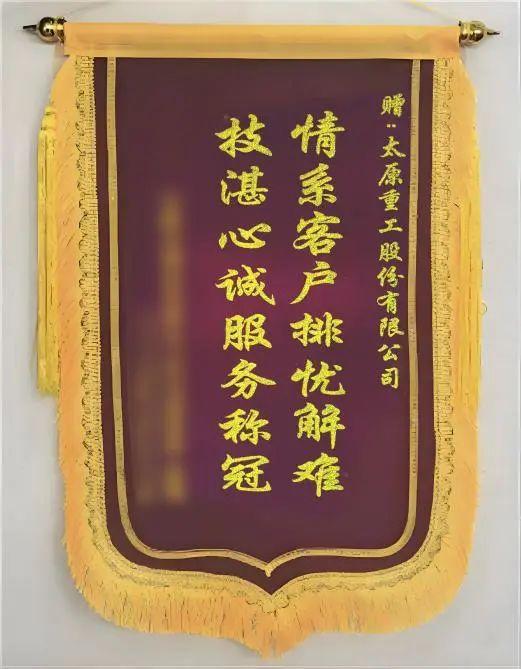 赠：太原重工股份有限公司
情系客户排忧解难
技湛心诚服务称冠